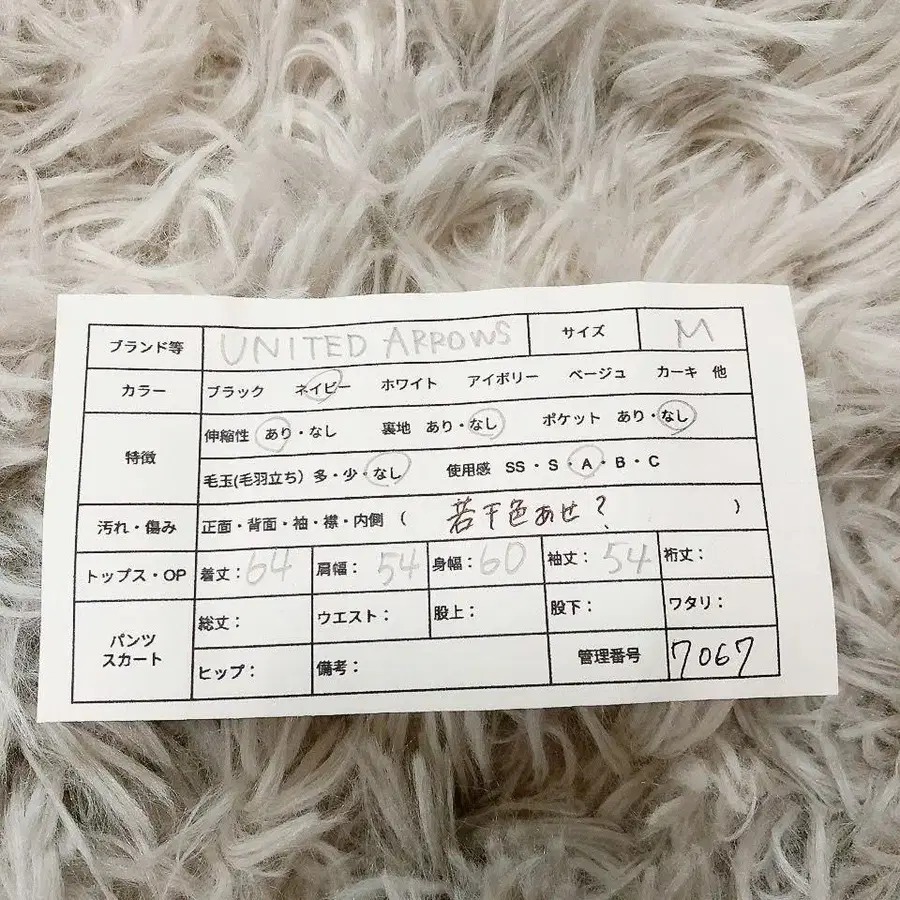 ブランド等 UNITED ARROWS サイズ M
カラー ブラック ネイビー ホワイト アイボリー ベージュ カーキ 他
特徴 伸縮性 あり・なし 裏地 あり・なし ポケット あり・なし
毛玉(毛羽立ち) 多・少・なし 使用感 SS・S・A・B・C
汚れ・傷み 正面・背面・袖・襟・内側 ( 若干色あせ? )
トップス・OP 着丈:64 肩幅:54 身幅:60 袖丈:54 裄丈:
パンツ スカート 総丈: ウエスト: 股上: 股下: ワタリ:
ヒップ: 備考: 管理番号 7067